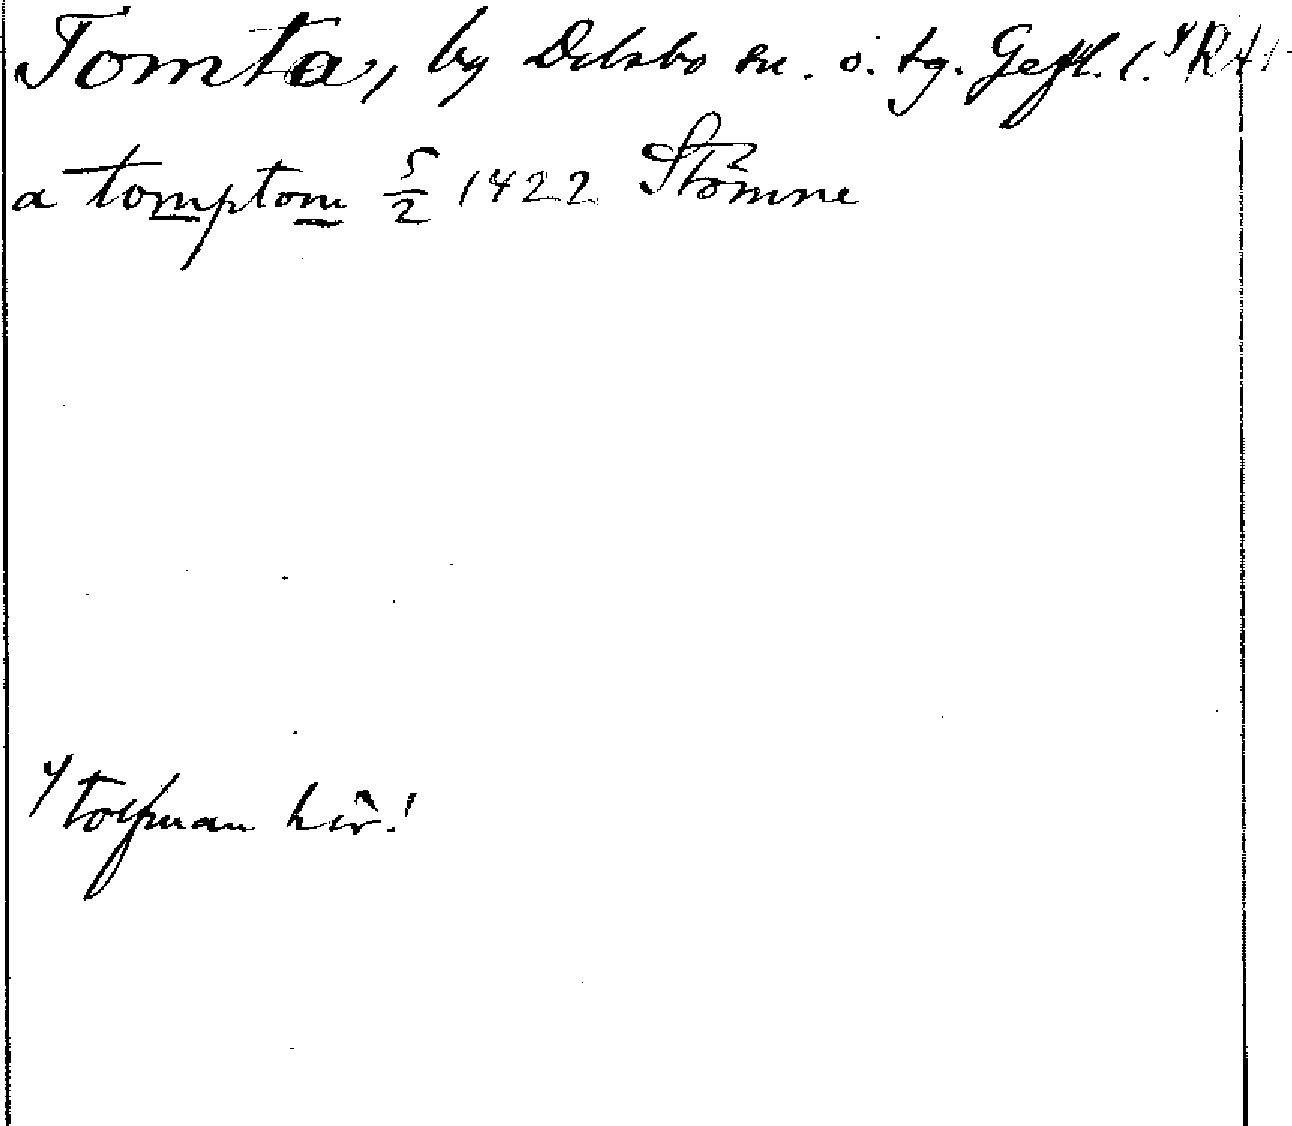 Tomta, by Delsbo sn. o. tg. Gefl. l. RA
a tomptom 5/2 1422 Stömne
tolfman här!